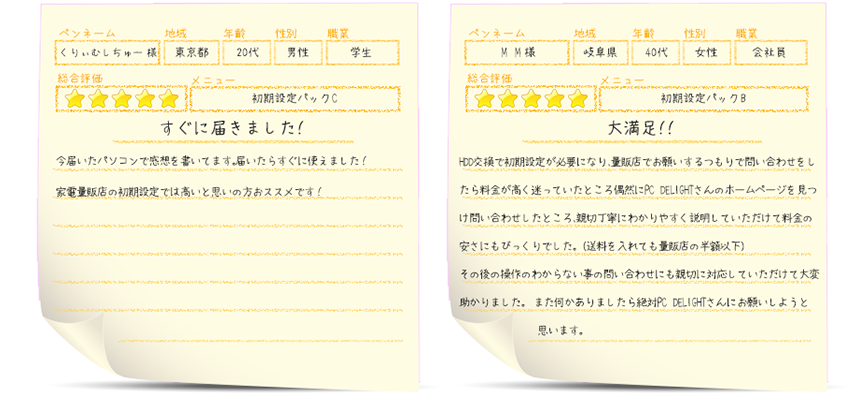 ペンネーム 地域 年齢 性別 職業
くりぃむしちゅー 様 東京都 20代 男性 学生
総合評価 メニュー
初期設定パックC
すぐに届きました!
今届いたパソコンで感想を書いてます。届いたらすぐに使えました!
家電量販店の初期設定では高いと思いの方おススメです!
ペンネーム 地域 年齢 性別 職業
M M 様 岐阜県 40代 女性 会社員
総合評価 メニュー
初期設定パックB
大満足!!
HDD交換で初期設定が必要になり、量販店でお願いするつもりで問い合わせをし
たら料金が高く迷っていたところ偶然にPC DELIGHTさんのホームページを見つ
け問い合わせしたところ、親切丁寧にわかりやすく説明していただけて料金の
安さにもびっくりでした。(送料を入れても量販店の半額以下)
その後の操作のわからない事の問い合わせにも親切に対応していただけて大変
助かりました。 また何かありましたら絶対PC DELIGHTさんにお願いしようと
思います。